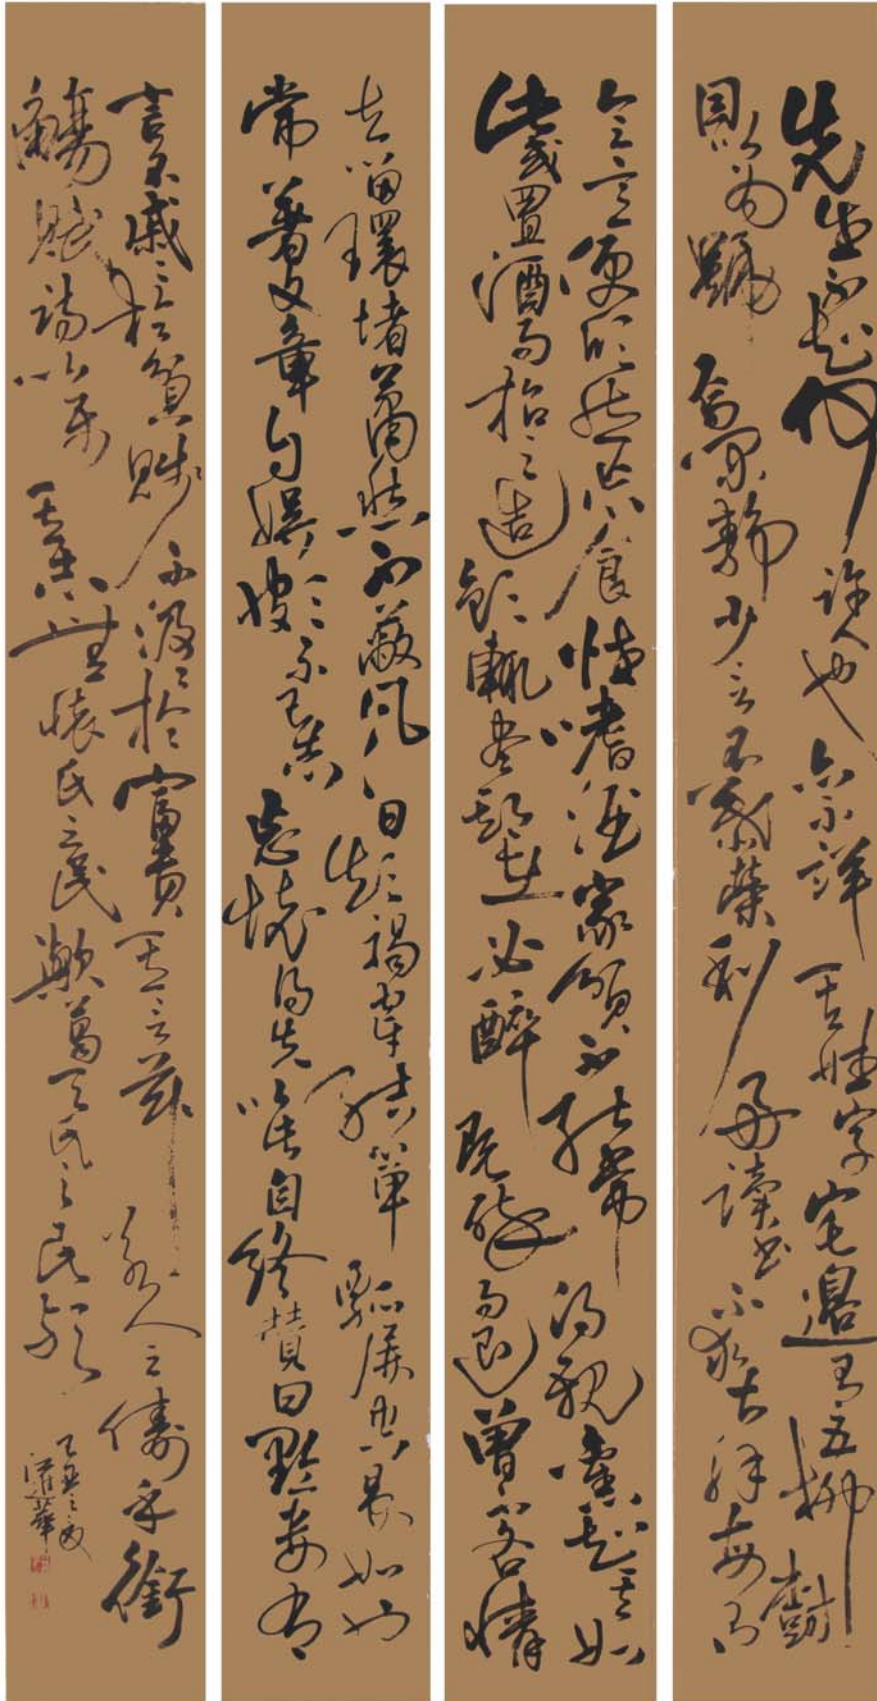 先生不知何許人也亦不詳其姓字宅邊有五柳樹
因以為號焉閑靜少言不慕榮利好讀書不求甚解每有
會意便欣然忘食性嗜酒家貧不能常得親舊知其如
此或置酒而招之造飲輒盡期在必醉既醉而退曾不吝情
去留環堵蕭然不蔽風日短褐穿結簞瓢屢空晏如也
常著文章自娛頗示己志忘懷得失以此自終贊曰黔婁有
言不戚戚於貧賤不汲汲於富貴其言茲若人之儔乎銜
觴賦詩以樂其志無懷氏之民歟葛天氏之民歟